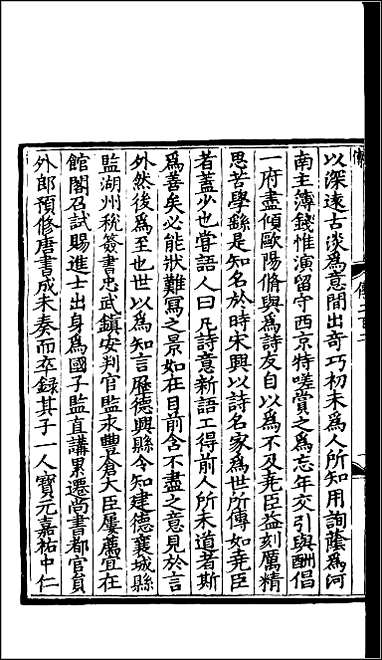 以深遠古淡為意間出奇巧初未為人所知用詢蔭為河
南主薄錢惟演留守西京特嗟賞之為忘年交引與酬倡
一府盡傾歐陽脩與為詩友自以為不及堯臣益刻厲精
思苦學繇是知名於時宋興以詩名家為世所傳如堯臣
者蓋少也甞語人曰凡詩意新語工得前人所未道者斯
為善矣必能狀難寫之景如在目前含不盡之意見於言
外然後為至也世以為知言歷德興縣令知建德襄城縣
監湖州稅簽書忠武鎮安判官監永豐倉大臣屢薦宜在
館閣召試賜進士出身為國子監直講累遷尚書都官員
外郎預修唐書成未奏而卒錄其子一人寶元嘉祐中仁